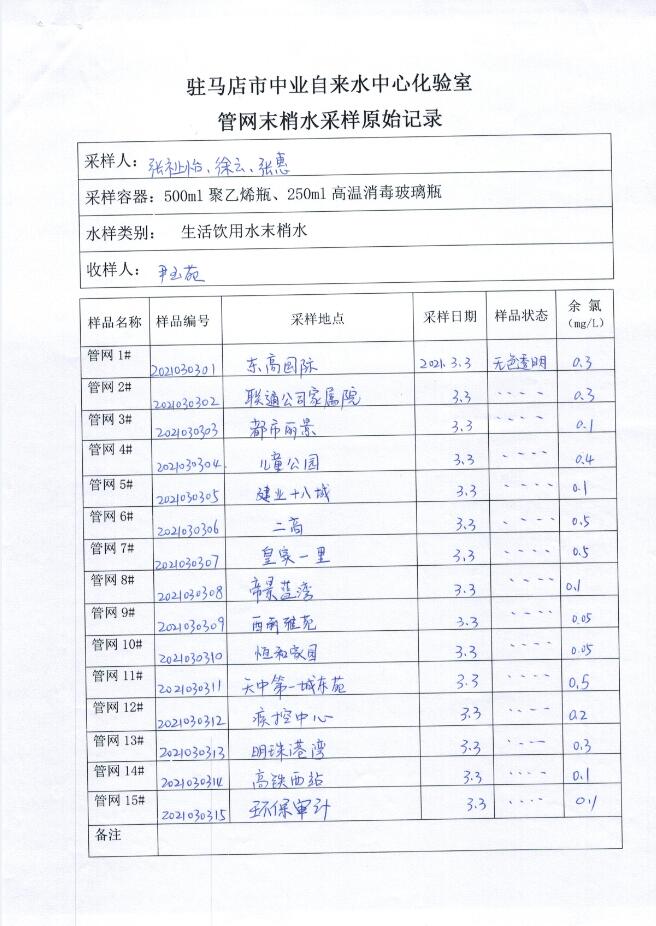 驻马店市中业自来水中心化验室
管网末梢水采样原始记录
采样人: 张祉怡、徐云、张惠
采样容器: 500ml 聚乙烯瓶、250ml 高温消毒玻璃瓶
水样类别: 生活饮用水末梢水
收样人: 尹玉苑
样品名称 样品编号 采样地点 采样日期 样品状态 余 氯
(mg/L)
管网 1# 2021030301 东高国际 2021.3.3 无色透明 0.3
管网 2# 2021030302 联通公司家属院 3.3 、、、、 0.3
管网 3# 2021030303 都市丽景 3.3 、、、、 0.1
管网 4# 2021030304 儿童公园 3.3 、、、、 0.4
管网 5# 2021030305 建业十八城 3.3 、、、、 0.1
管网 6# 2021030306 二高 3.3 、、、、 0.5
管网 7# 2021030307 皇家一里 3.3 、、、、 0.5
管网 8# 2021030308 帝景蓝湾 3.3 、、、、 0.1
管网 9# 2021030309 西雅苑 3.3 、、、、 0.05
管网 10# 2021030310 恒和家园 3.3 、、、、 0.05
管网 11# 2021030311 天中第一城东苑 3.3 、、、、 0.5
管网 12# 2021030312 疾控中心 3.3 、、、、 0.2
管网 13# 2021030313 明珠港湾 3.3 、、、、 0.3
管网 14# 2021030314 高铁西站 3.3 、、、、 0.1
管网 15# 2021030315 环保审计 3.3 、、、、 0.1
备注